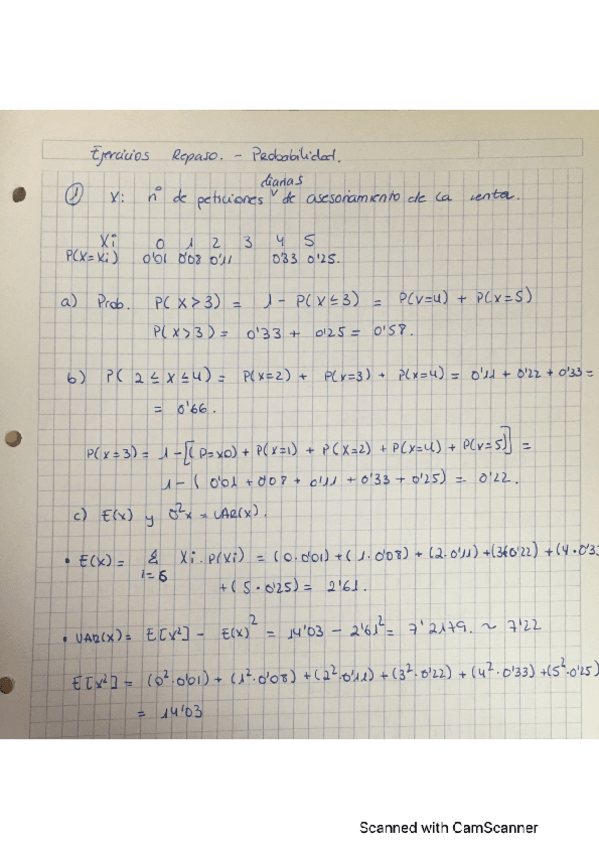 Ejercicios Repaso. - Probabilidad.
diarias
① X: nº de peticiones v de asesoramiento de la venta.
Xi 0 1 2 3 4 5
P(X=Xi) 0'01 0'08 0'11 0'33 0'25.
a) Prob. P(X>3) = 1 - P(X≤3) = P(X=4) + P(X=5)
P(X>3) = 0'33 + 0'25 = 0'58.
b) P( 2 ≤ X ≤ 4) = P(X=2) + P(X=3) + P(X=4) = 0'11 + 0'22 + 0'33 =
= 0'66.
P(X=3) = 1 - [(P=x0) + P(X=1) + P(X=2) + P(X=4) + P(X=5)] =
1 - ( 0'01 + 0'08 + 0'11 + 0'33 + 0'25) = 0'22.
c) E(x) y σ²x = VAR(x).
• E(x) = Σ Xi . P(Xi) = (0.0'01) + (1.0'08) + (2.0'11) + (3·0'22) + (4·0'33
i=6
+ (5·0'25) = 2'61.
• VAR(x) = E[X²] - E(x)² = 14'03 - 2'61² = 7'2179. ~ 7'22
E[X²] = (0²·0'01) + (1²·0'08) + (2²·0'11) + (3²·0'22) + (4²·0'33) + (5²·0'25)
= 14'03
Scanned with CamScanner